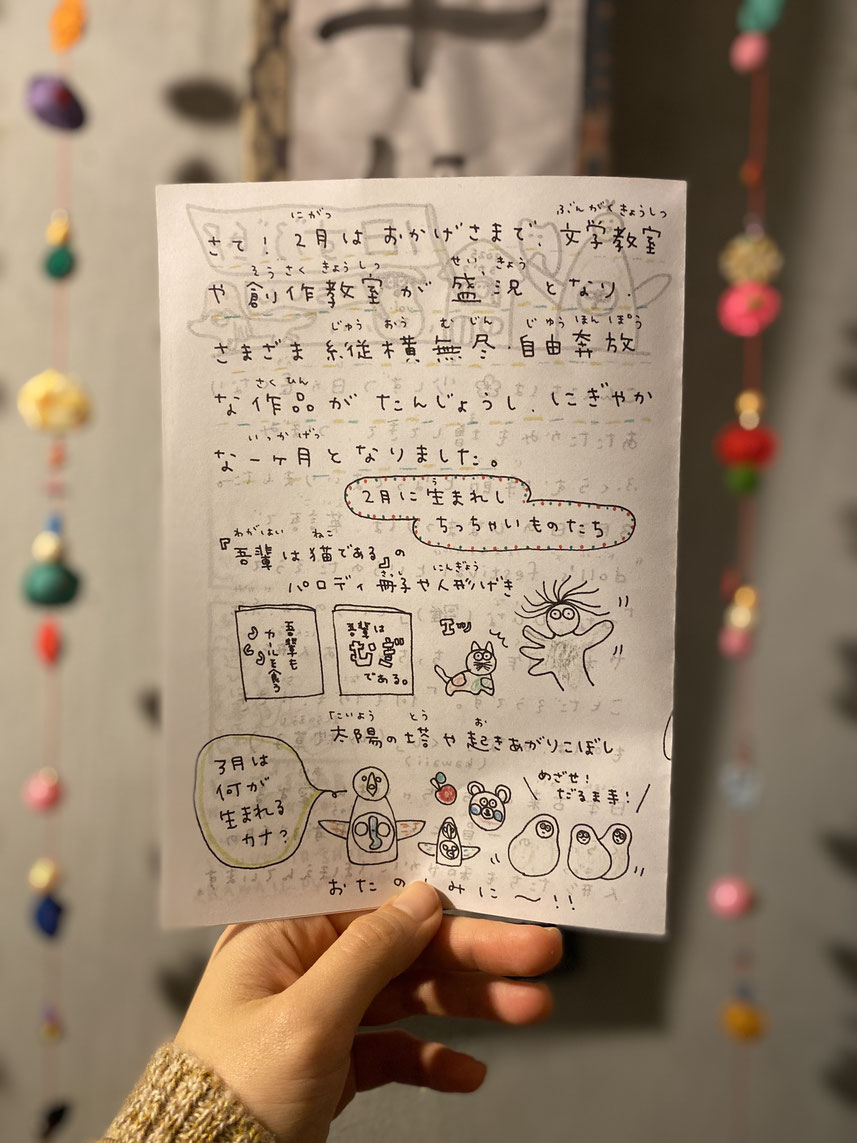 さて！2月はおかげさまで、文学教室
や創作教室が盛況となり、
さまざま縦横無尽・自由奔放
な作品がたんじょうし、にぎやか
な一ヶ月となりました。
2月に生まれし
ちっちゃいものたち
『吾輩は猫である』の
パロディ冊子や人形げき
吾輩も
カールを食う
吾輩は
むぎ
である。
エッ
太陽の塔や起きあがりこぼし
3月は
何が
生まれる
カナ?
めざせ!
だるま寺!
おたのしみに〜!!